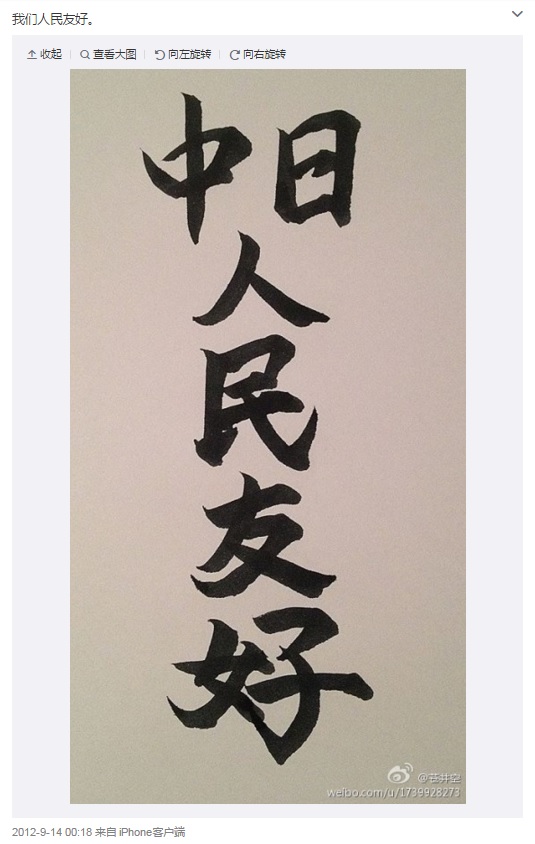 我们人民友好。
收起 查看大图 向左旋转 向右旋转
中日
人
民
友
好
@苍井空
weibo.com/u/1739928273
2012-9-14 00:18 来自 iPhone客户端